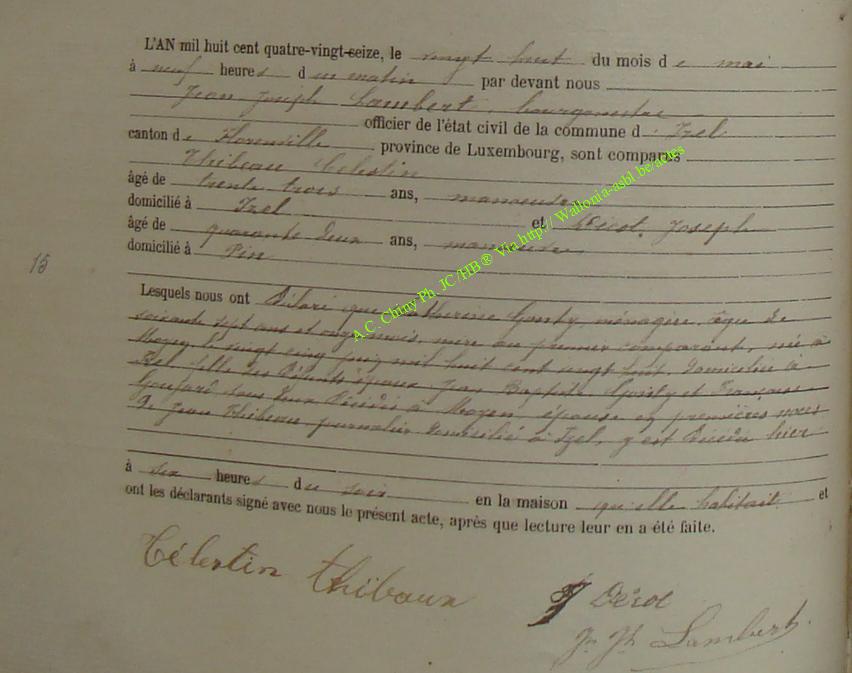 L'AN mil huit cent quatre-vingt-seize, le vingt huit du mois de mai
à neuf heures du matin par devant nous
Jean Joseph Lambert, bourgmestre
officier de l'état civil de la commune d' Izel
canton de Florenville province de Luxembourg, sont comparus
Thibeau Célestin
âgé de trente trois ans, manoeuvre
domicilié à Izel et Dérot, Joseph
âgé de quarante deux ans, manoeuvre
domicilié à Pin
15
Lesquels nous ont déclaré que Catherine Gonty, ménagère, âgée de
soixante sept ans et onze mois, mère au premier comparant, née à
Moyen le vingt cinq juin mil huit cent vingt huit, domiciliée à
Izel, fille des défunts époux Jean Baptiste Gonty et Françoise
tous deux décédés à Moyen, épouse en premières noces
de Jean Thibeau, journalier domicilié à Izel, y est décédée hier
à six heures du soir en la maison qu'elle habitait et
ont les déclarants signé avec nous le présent acte, après que lecture leur en a été faite.
Célestin Thibaux
J Dérot
Jn Jh Lambert
A.C. Chiny Ph. JC/HB ® Via http:// Wallonia-asbl be/actes